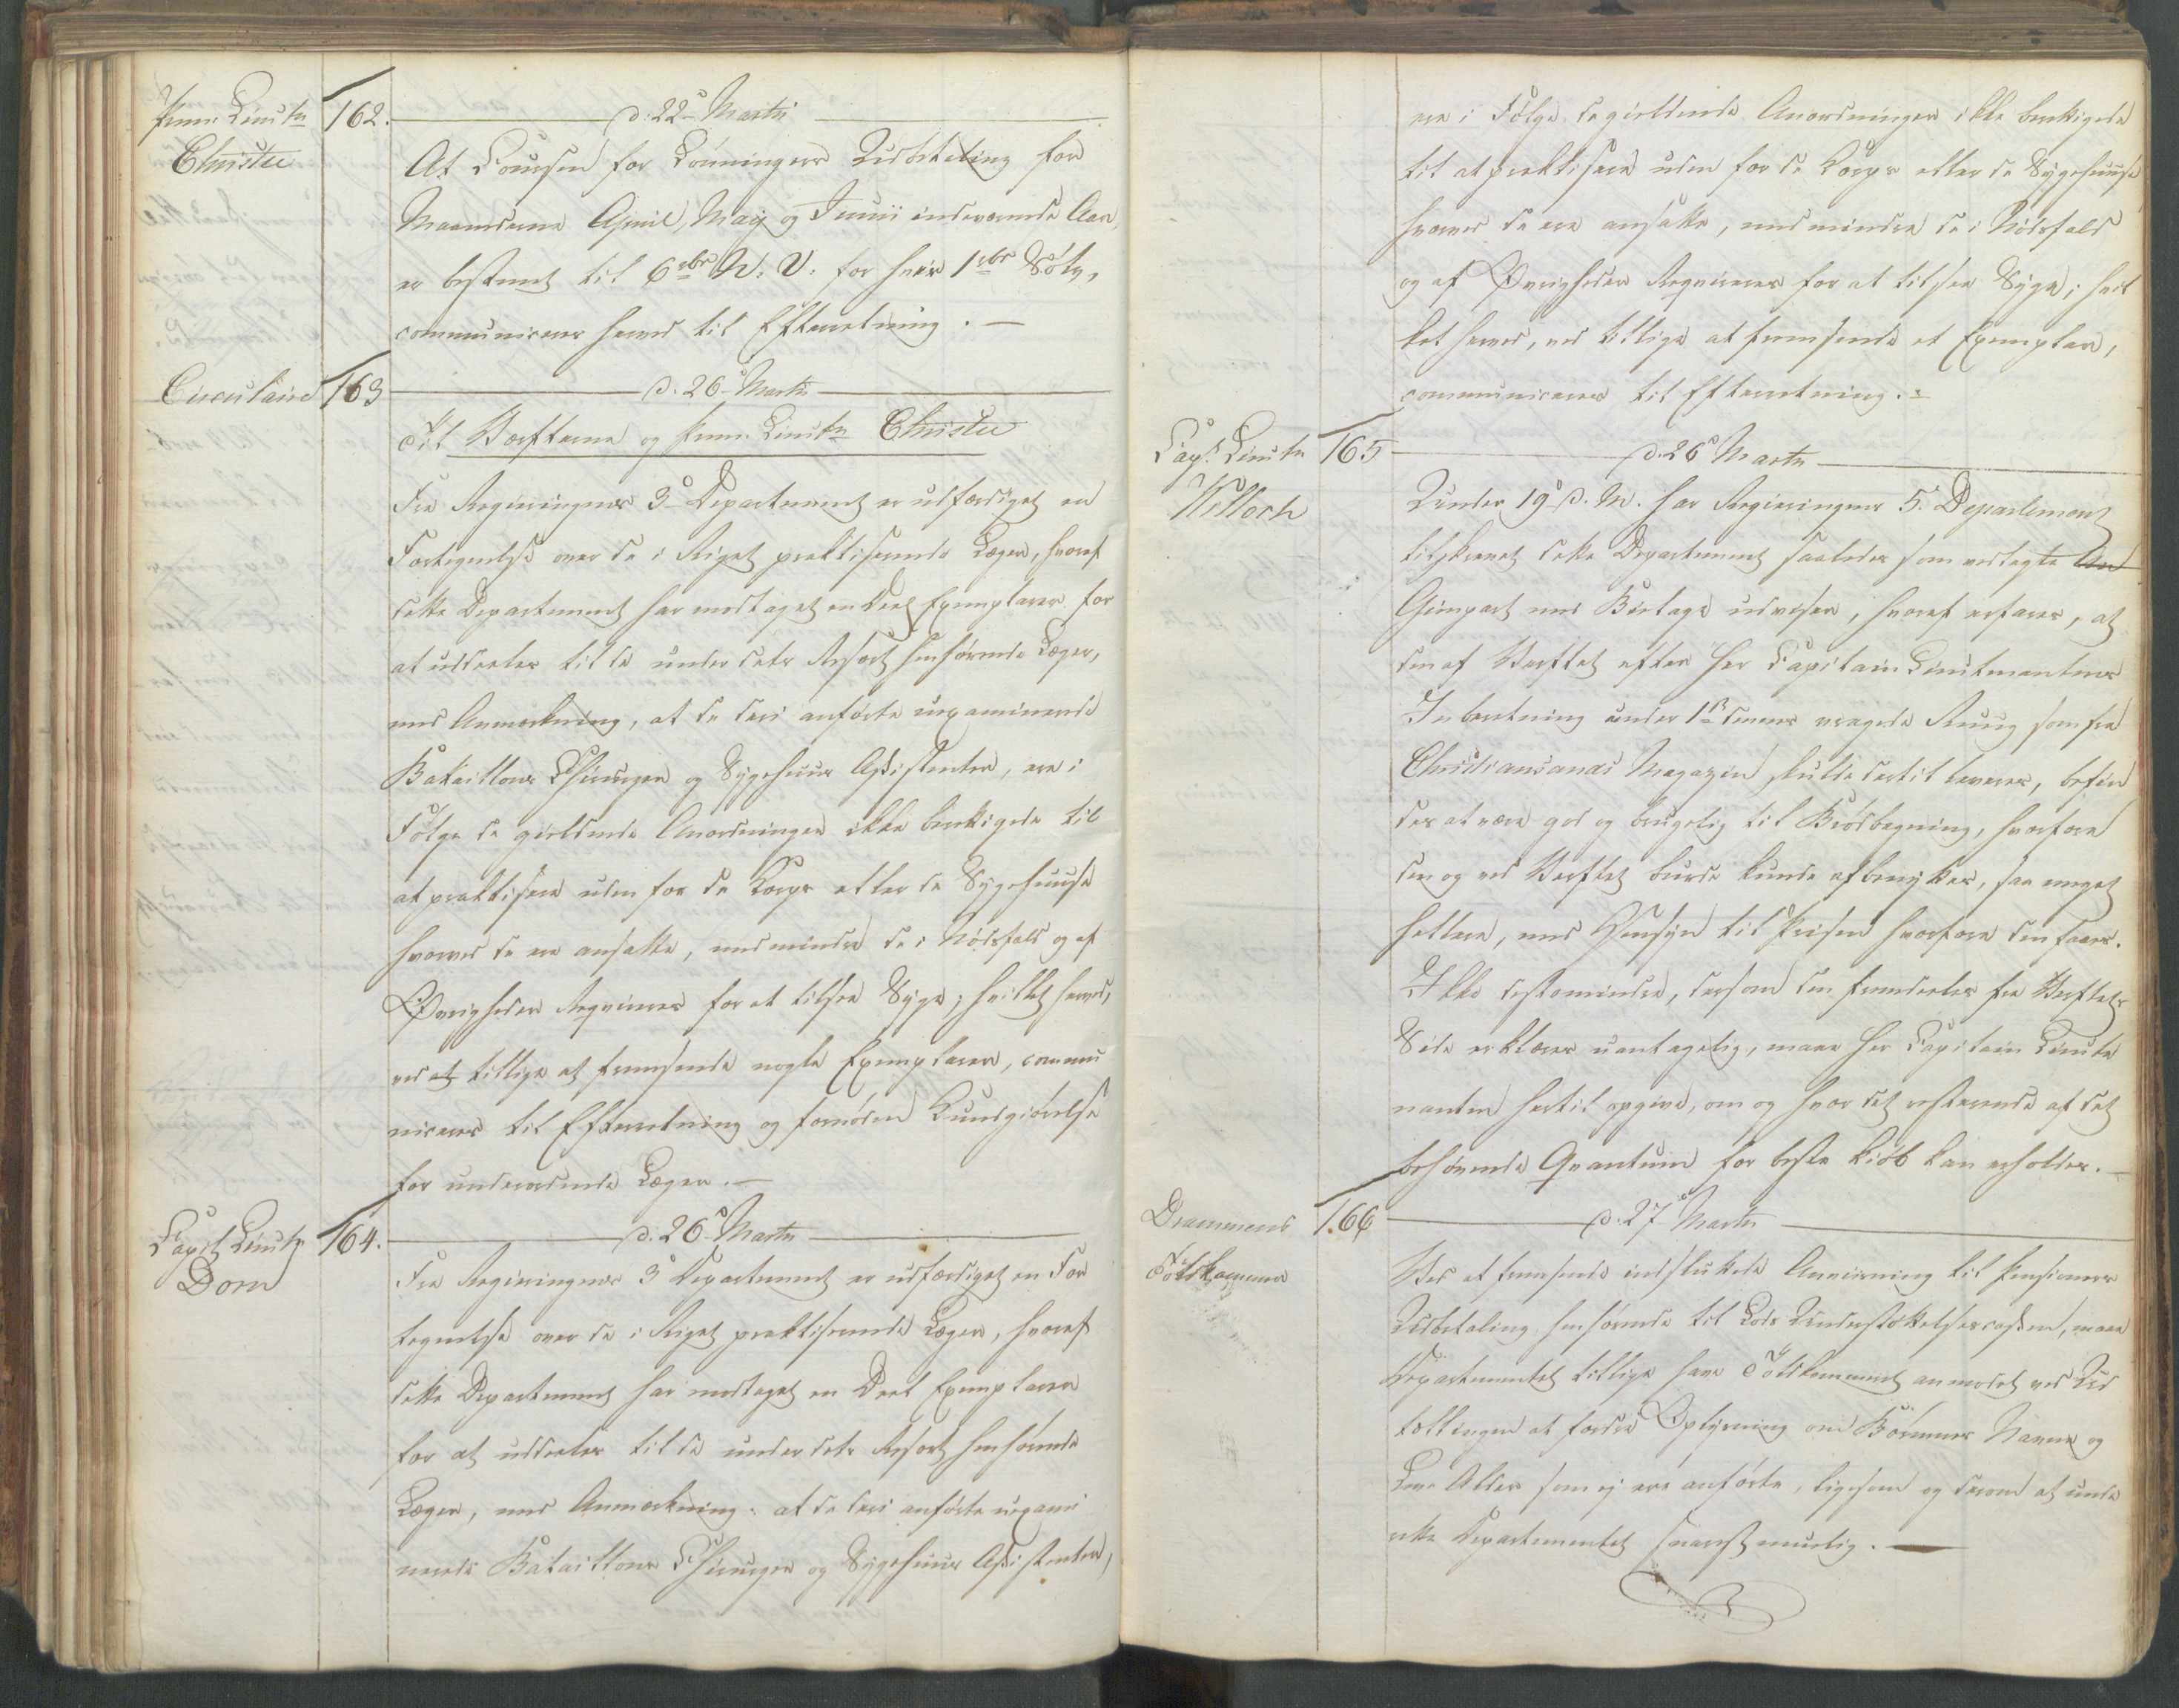 Prem: Lieutn
Christie
162.
d: 22de Martii
At Coursen for Lønningers Udbetaling for
Maanederne April, Maij og Junii indeværende Aar,
er bestemt til 6 rbr N: V: for hver 1 rbr Sølv,
communiceres herved til Efterretning. —
Circulaire 163
d. 26de Martii
Til Værfterne og Prem: Lieutn Christie
Fra Regieringens 3de Departement er udfærdiget en
Fortegnelse over de i Riget praktiserende Læger, hvoraf
dette Departement har modtaget en Deel Exemplarer for
at uddeeles til de under dets Resort henhørende Læger,
med Anmerkning, at de deri anførte uexaminerede
Batallions Chirurger og Sygehuus Assistenter, ere i
Følge de gieldende Anordninger ikke berettigede til
at praktisere uden for de Korps eller de Sygehuuse
hvorved de ere ansatte, med mindre de i Nødsfald og af
Øvrigheden Reqvireres for at tilsee Syge; hvilket herved,
ved at tillige at fremsende nogle Exemplarer, commu
niceres til Efterretning og fornøden Kundgiørelse
for underordnede Læger. —
Capit Lieutn
Dorn
164.
d. 26de Martii
Fra Regieringens 3de Departement er udfærdiget en For
tegnelse over de i Riget praktiserende Læger, hvoraf
dette Departement har modtaget en Deel Exemplarer
for at uddeeles til de under dets Resort henhørende
Læger, med Anmærkning: at de deri anførte uexami
nerede Bataillons Chirurger og Sygehuus Assistenter,
ere i Følge de gieldende Anordninger ikke berettigede
til at praktisere uden for de Korps eller de Sygehuuse
hvorved de ere ansatte, med mindre de i Nødsfald
og af Øvrigheden Reqvireres for at tilsee Syge; hvil
ket herved, ved tillige at fremsende et Exemplar,
communiceres til Efterretning. =
Capt Lieutn
Kelloch
165
d. 26de Martii
Under 19de d. M. har Regieringens 5te Departement
tilskrevet dette Departement saaledes som vedlagte
Gienpart med Bielage udviser, hvoraf erfares, at
den af Værftet efter Her Capitain Lieutenantens
Indberetning under 1ste dennes vragede Ruug som fra
Christiansands Magazin skulde dertil leveres, befin
des at være god og brugelig til Brødbagning, hvorfore
den og ved Værftet burde kunde afbenyttes, saa meget
hellere, med Hensyn til Prisen hvorfore den faaes.
Ikke destomindre, dersom den fremdeeles fra Værftets
Side erklæres uantagelig, maae Her Capitain Lieute
nanten hertil opgive, om og hvor det resterende af det
behøvende Qvantum for beste Kiøb kan erholdes. —
Drammens
Toldkammer
166
d. 27de Martii
Ved at fremsende indsluttede Anviisning til Pensioners
Udbetaling henhørende til Lods Understøttelsescassen, maae
Departementet tillige have Toldkammeret anmodet ved Ud
tællingen at fordre Oplysning om Børnenes Navne og
Alder som ej ere anførte, ligesom og derom at unde
rette Departementet snarest mueligt. —